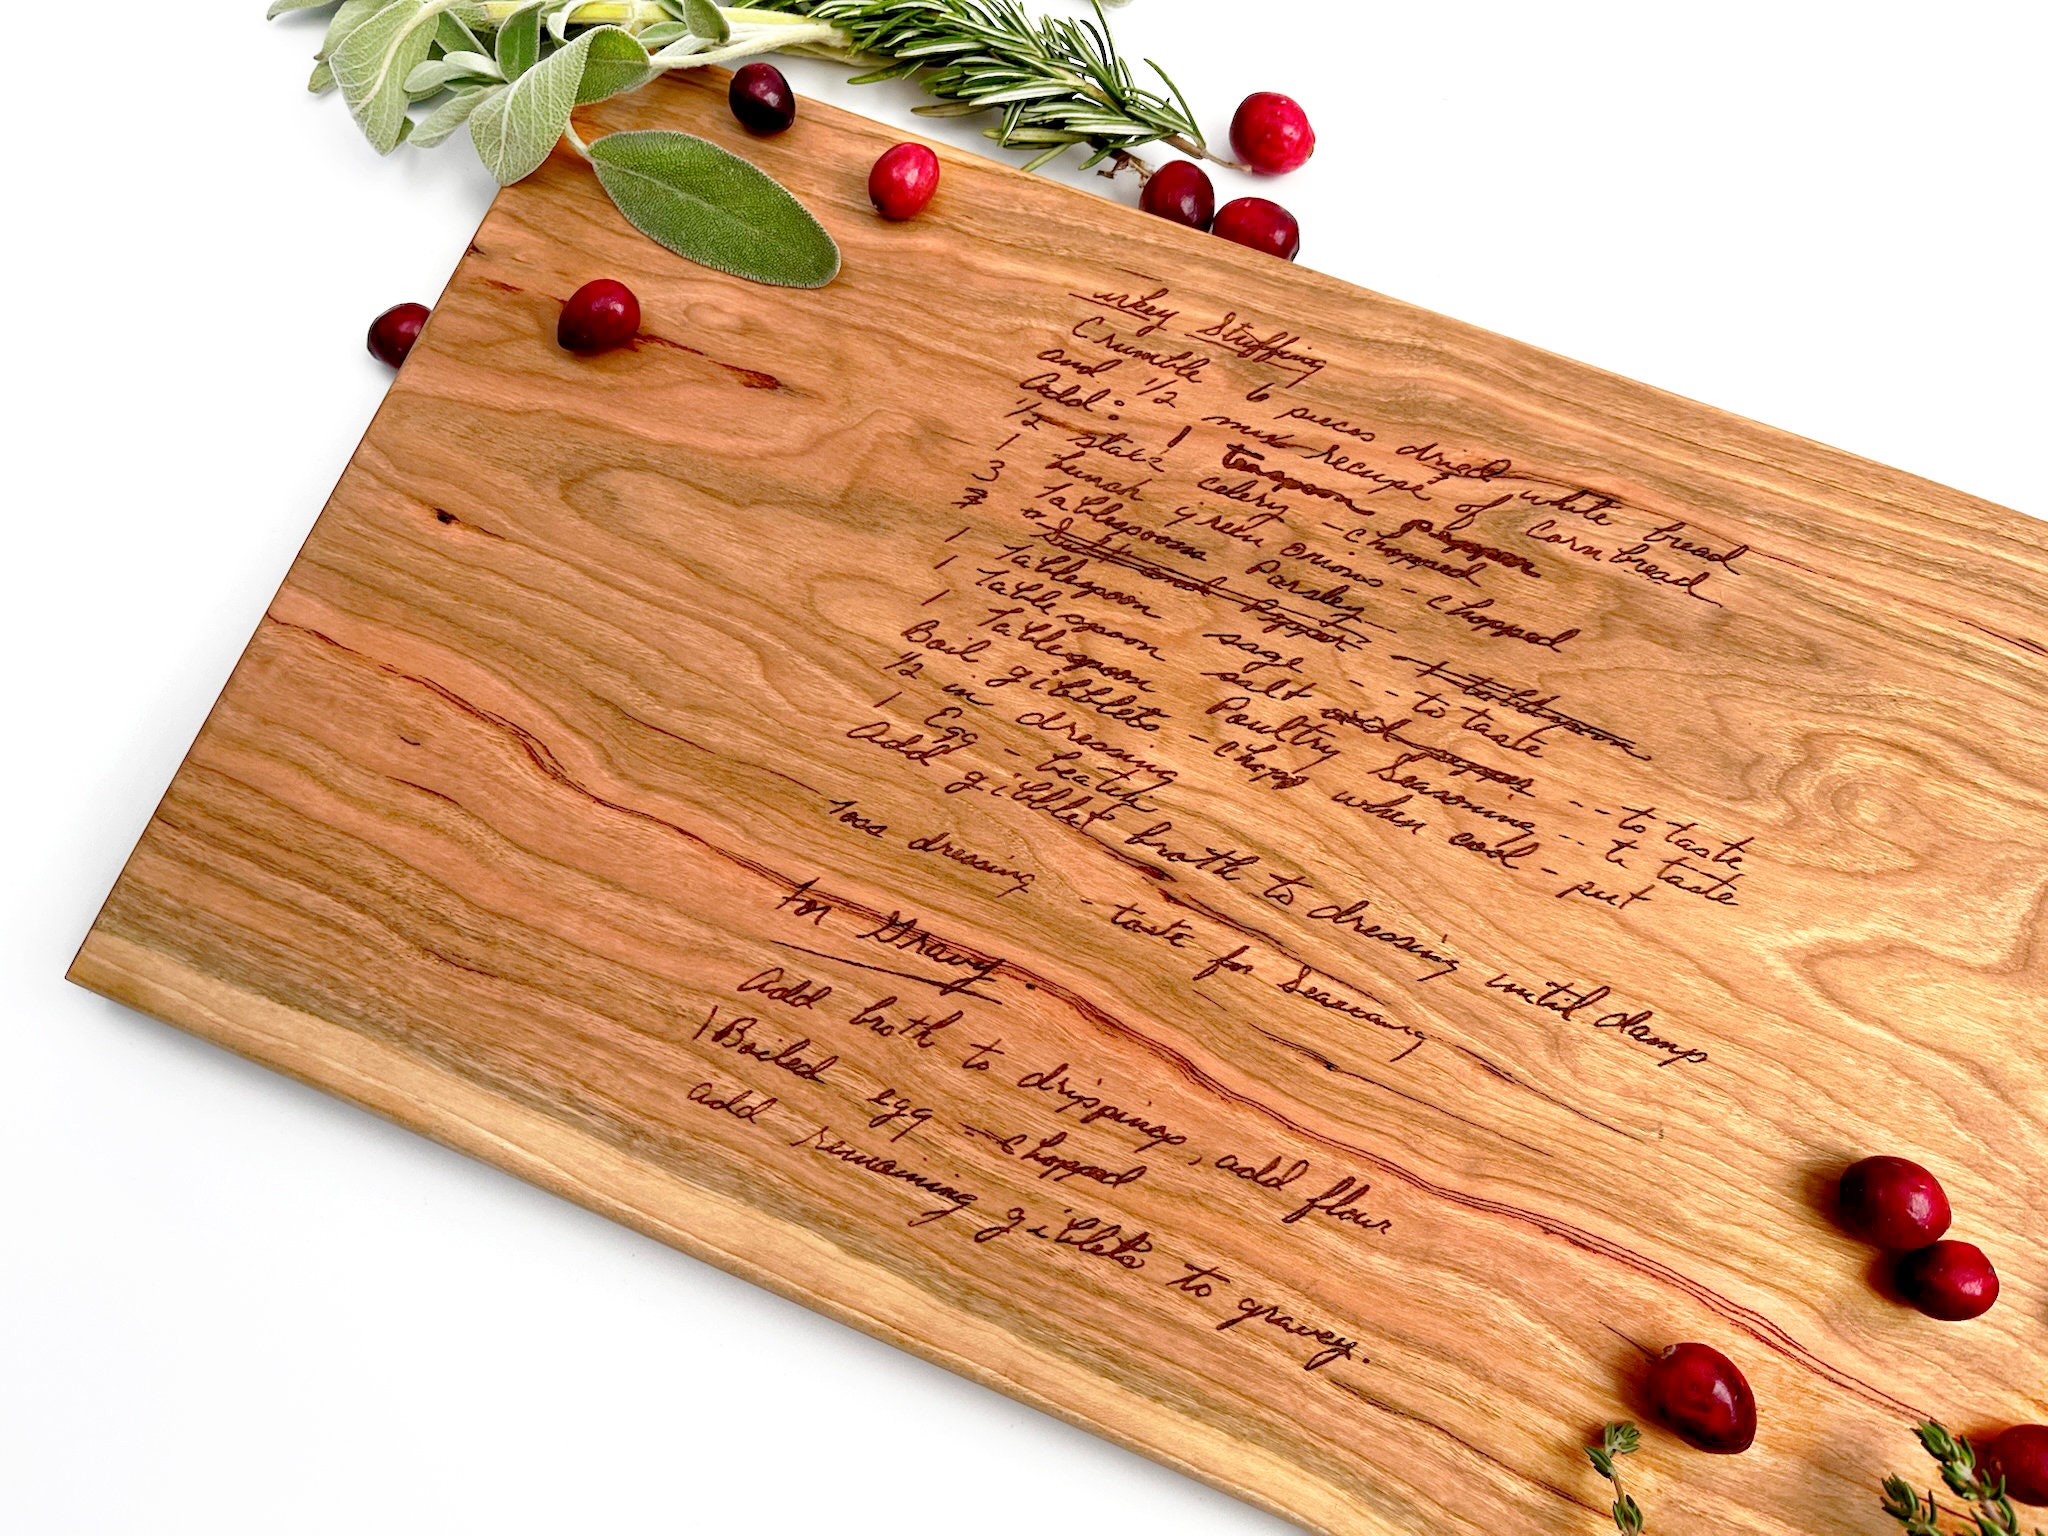 urkey Stuffing
Crumble 6 pieces dried white bread
and 1/2 mix recipe of Corn bread
Add: 1 teaspoon pepper
1/2 stalk celery - chopped
1 bunch green onions - chopped
3 Tablespoons Parsley
" Salt and Pepper
1 Tablespoon sage -- to taste
1 Tablespoon salt and pepper -- to taste
1 Tablespoon Poultry Seasoning -- to taste
Boil gibblets - chop when cool - put
1/2 in dressing
1 Egg - beaten
Add gibblet broth to dressing until damp
Toss dressing - taste for Seasoning
for Gravy
Add broth to drippings, add flour
1 Boiled egg - chopped
add remaining gibblets to gravey.